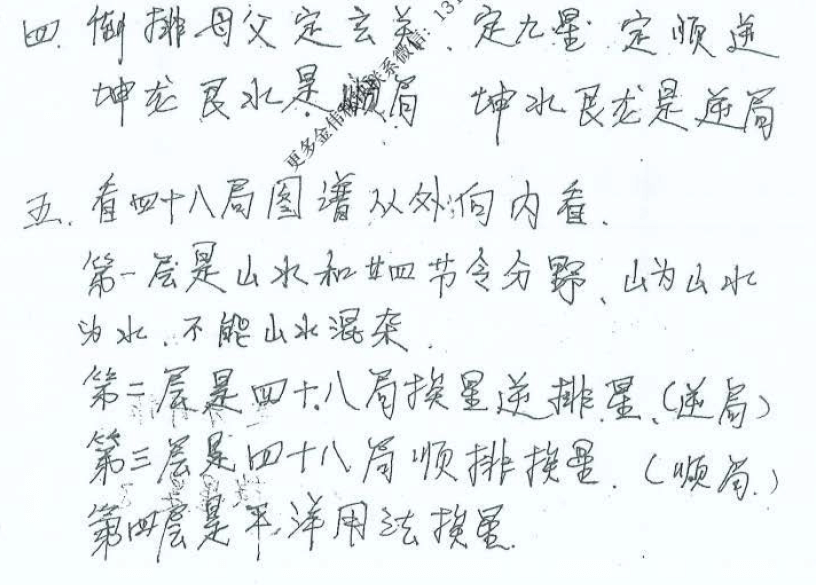 四. 倒排母父定玄关、定九星 定顺逆
坤龙艮水是顺局 坤水艮龙是逆局
五. 看四十八局图谱从外向内看.
第一层是山水和廿四节令分野、山为山水
为水、不能山水混杂.
第二层是四十八局挨星逆排星、(逆局)
第三层是四十八局顺排挨星.(顺局.)
第四层是平洋用法挨星.
更多金 联系微信：13